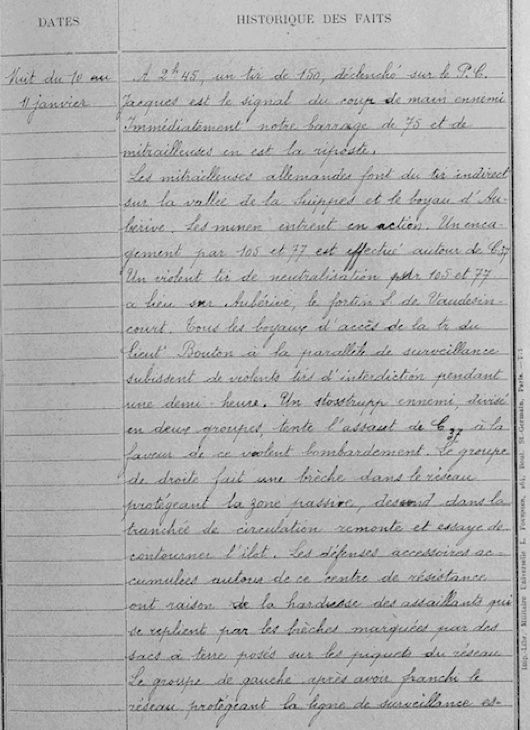 DATES
HISTORIQUE DES FAITS
Nuit du 10 au
11 janvier
A 2h45, un tir de 150, déclenché sur le P.C.
Jacques est le signal du coup de main ennemi
Immédiatement notre barrage de 75 et de
mitrailleuses en est la riposte.
Les mitrailleuses allemandes font du tir indirect
sur la vallée de la Suippes et le boyau d'Au-
bérive. Les minen entrent en action. Un enca-
gement par 105 et 77 est effectué autour de C37
Un violent tir de neutralisation par 105 et 77
a lieu sur Aubérive, le fortin S. de Vaudesin-
court. Tous les boyaux d'accès de la tr. du
Lieutt Bouton à la parallèle de surveillance
subissent de violents tirs d'interdiction pendant
une demi-heure. Un stosstrupp ennemi, divisé
en deux groupes, tente l'assaut de C37 à la
faveur de ce violent bombardement. Le groupe
de droite fait une brèche dans le réseau
protégeant la zone passive, descend dans la
tranchée de circulation remonte et essaye de
contourner l'ilot. Les défenses accessoires ac-
cumulées autour de ce centre de résistance
ont raison de la hardiesse des assaillants qui
se replient par les brèches marquées par des
sacs à terre posés sur les piquets du réseau
Le groupe de gauche après avoir franchi le
réseau protégeant la ligne de surveillance es-
Imp.-Lib. Militaire Universelle L. Fournier, 264, Boul. St-Germain, Paris.